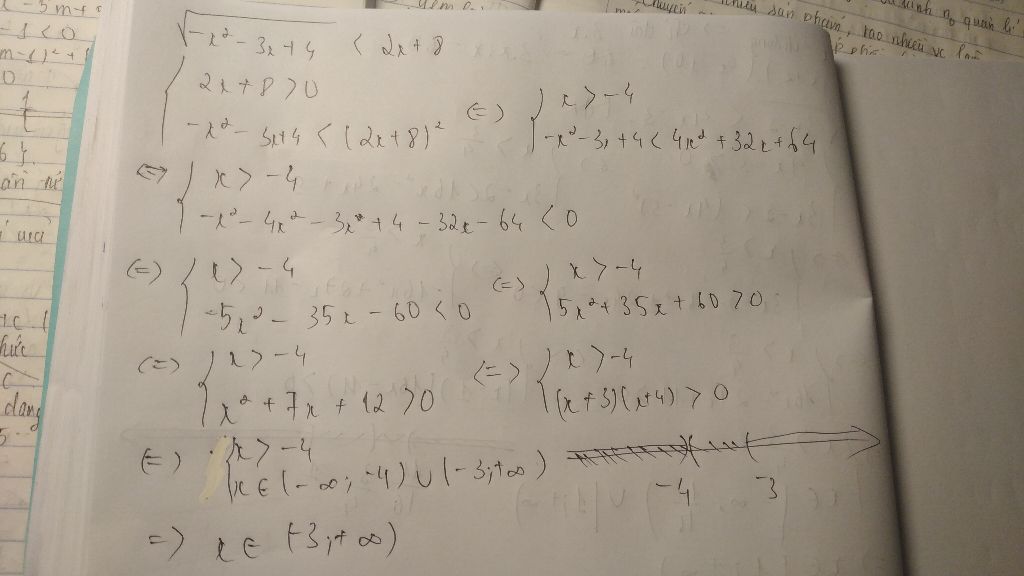 √(-x² - 3x + 4) < 2x + 8
{ 2x + 8 > 0
{ -x² - 3x + 4 < (2x + 8)²
(=) { x > -4
{ -x² - 3x + 4 < 4x² + 32x + 64
(=) { x > -4
{ -x² - 4x² - 3x + 4 - 32x - 64 < 0
(=) { x > -4
{ -5x² - 35x - 60 < 0
(=) { x > -4
{ 5x² + 35x + 60 > 0
(=) { x > -4
{ x² + 7x + 12 > 0
<=> { x > -4
{ (x + 3)(x + 4) > 0
(=) { x > -4
{ x ∈ (-∞; -4) ∪ (-3; +∞)
-4 -3
=> x ∈ (-3; +∞)